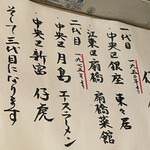 一代目
中央区銀座 東生居
一九七三年
江東区扇橋 扇橋菜館
二代目
中央区月島 エースラーメン
中央区新富 仔虎
そして三代目になります